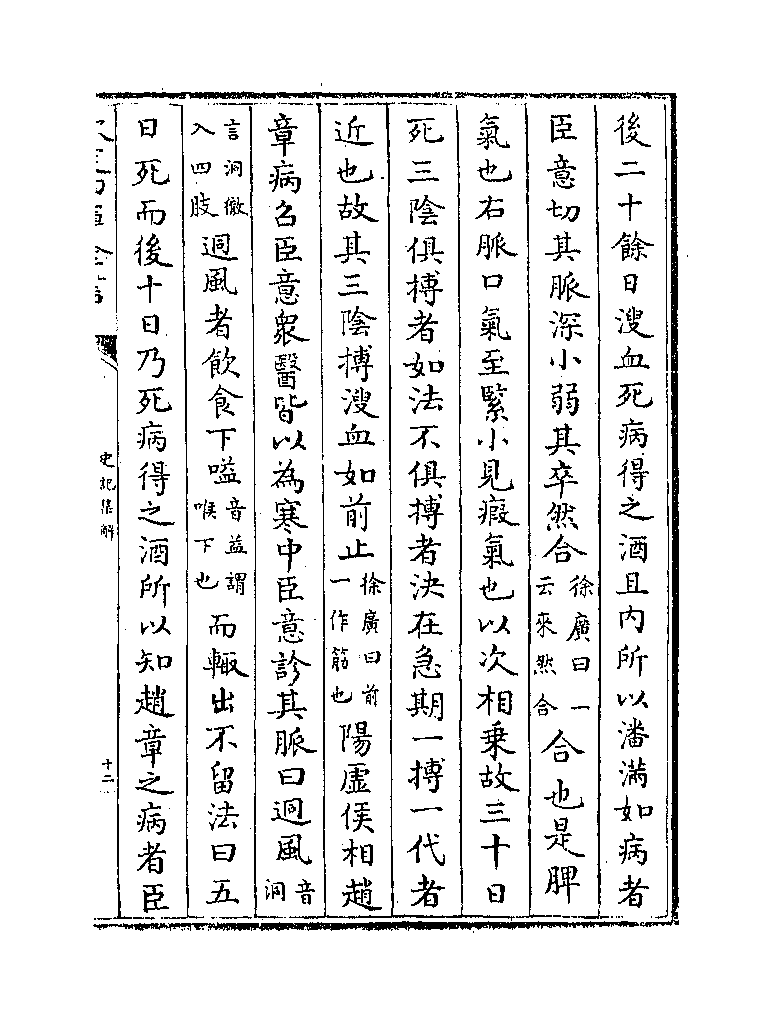 後二十餘日溲血死病得之酒且内所以知潘滿如病者
臣意切其脈深小弱其卒然合徐廣曰一云來然合合也是脾
氣也右脈口氣至緊小見瘕氣也以次相乗故三十日
死三陰俱搏者如法不俱搏者決在急期一搏一代者
近也故其三陰搏溲血如前止徐廣曰前一作筋也陽虛侯相趙
章病召臣意衆醫皆以為寒中臣意診其脈曰迵風音洞
言洞徹入四肢迵風者飲食下嗌音益謂喉下也而輙出不留法曰五
日死而後十日乃死病得之酒所以知趙章之病者臣
史記集解
十二